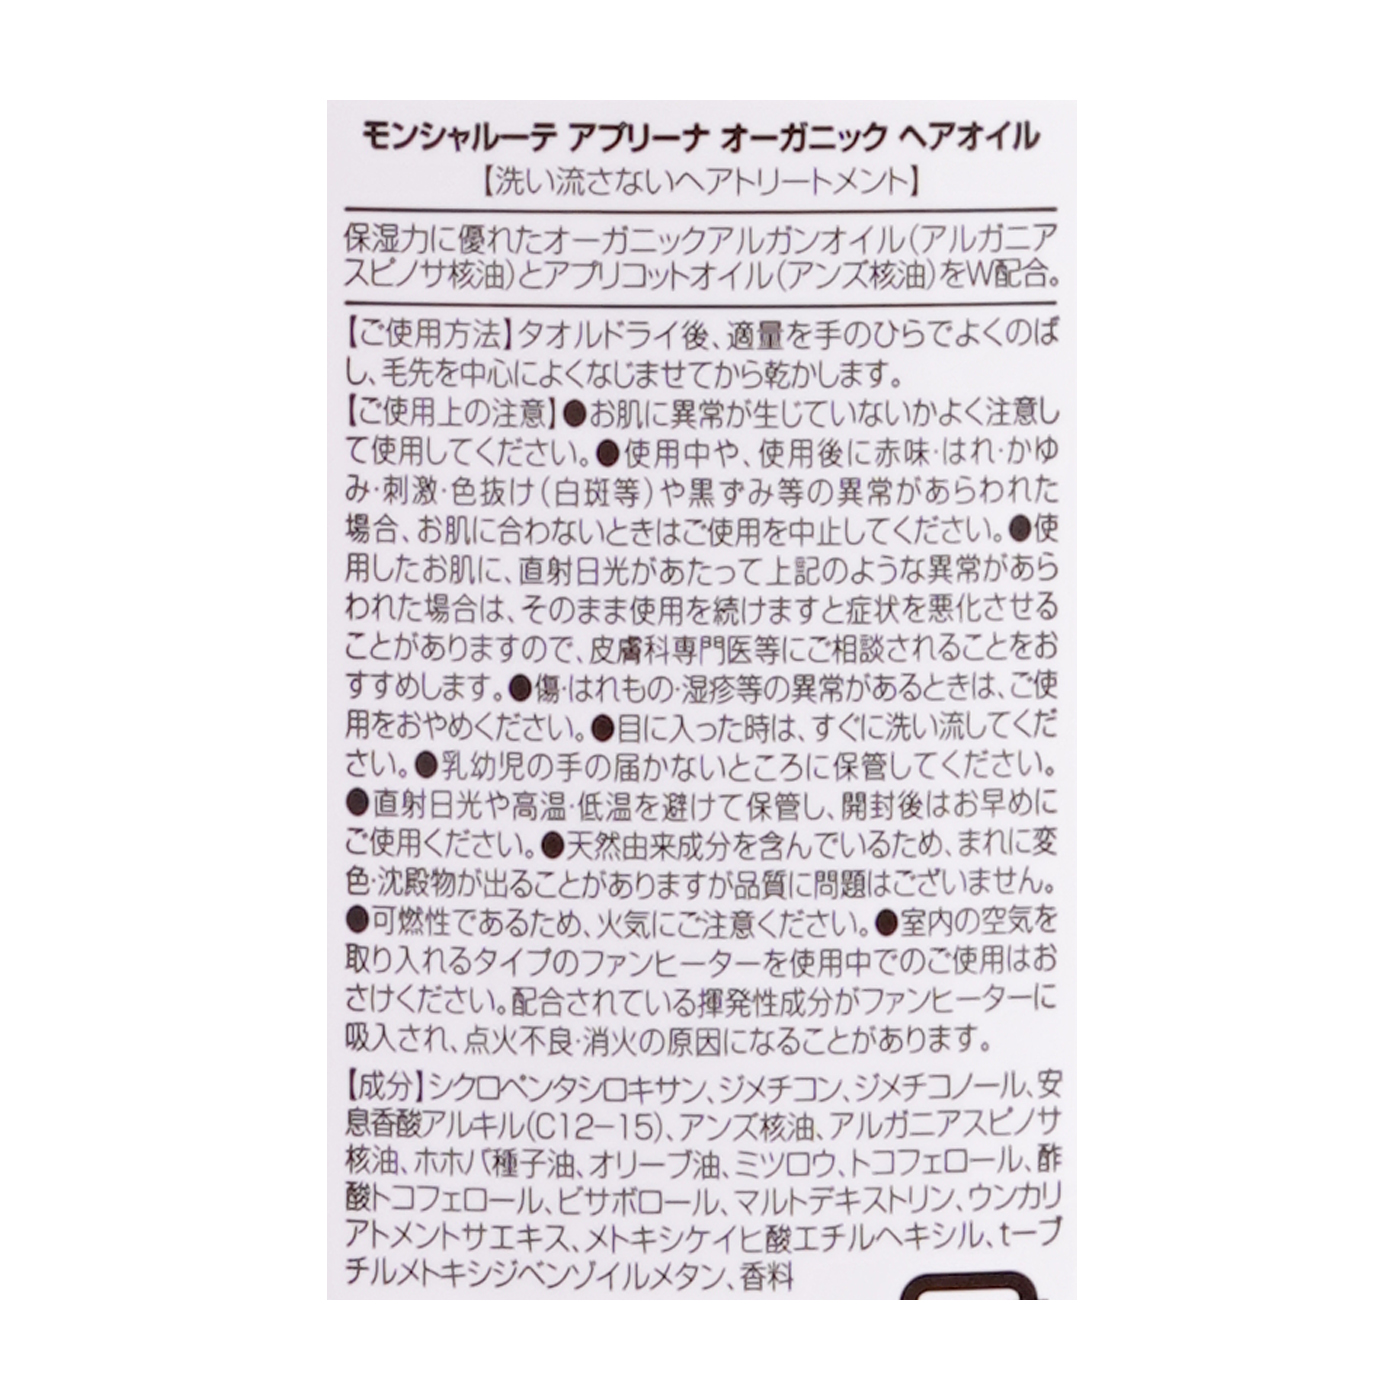 モンシャルーテ アプリーナ オーガニック ヘアオイル
【洗い流さないヘアトリートメント】
保湿力に優れたオーガニックアルガンオイル(アルガニア
スピノサ核油)とアプリコットオイル(アンズ核油)をW配合。
【ご使用方法】タオルドライ後、適量を手のひらでよくのば
し、毛先を中心によくなじませてから乾かします。
【ご使用上の注意】●お肌に異常が生じていないかよく注意し
て使用してください。●使用中や、使用後に赤味・はれ・かゆ
み・刺激・色抜け(白斑等)や黒ずみ等の異常があらわれた
場合、お肌に合わないときはご使用を中止してください。●使
用したお肌に、直射日光があたって上記のような異常があら
われた場合は、そのまま使用を続けますと症状を悪化させる
ことがありますので、皮膚科専門医等にご相談されることをお
すすめします。●傷・はれもの・湿疹等の異常があるときは、ご使
用をおやめください。●目に入った時は、すぐに洗い流してくだ
さい。●乳幼児の手の届かないところに保管してください。
●直射日光や高温・低温を避けて保管し、開封後はお早めに
ご使用ください。●天然由来成分を含んでいるため、まれに変
色・沈殿物が出ることがありますが品質に問題はございません。
●可燃性であるため、火気にご注意ください。●室内の空気を
取り入れるタイプのファンヒーターを使用中でのご使用はお
さけください。配合されている揮発性成分がファンヒーターに
吸入され、点火不良・消火の原因になることがあります。
【成分】シクロペンタシロキサン、ジメチコン、ジメチコノール、安
息香酸アルキル(C12-15)、アンズ核油、アルガニアスピノサ
核油、ホホバ種子油、オリーブ油、ミツロウ、トコフェロール、酢
酸トコフェロール、ビサボロール、マルトデキストリン、ウンカリ
アトメントサエキス、メトキシケイヒ酸エチルヘキシル、t-ブ
チルメトキシジベンゾイルメタン、香料